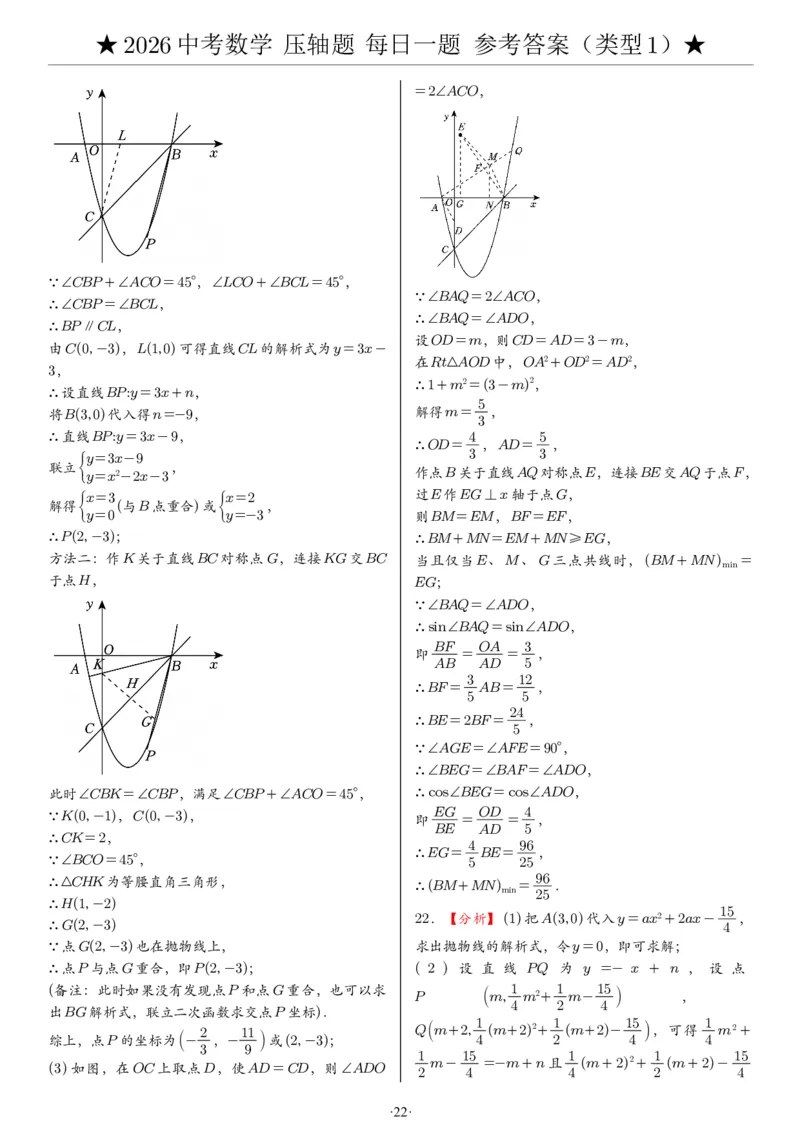 ★2026中考数学 压轴题 每日一题 参考答案（类型1）★
y
L
A
O
B
x
C
P
∵∠CBP+∠ACO=45°，∠LCO+∠BCL=45°，
∴∠CBP=∠BCL，
∴BP∥CL，
由C(0,-3)，L(1,0)可得直线CL的解析式为y=3x-
3，
∴设直线BP:y=3x+n，
将B(3,0)代入得n=-9，
∴直线BP:y=3x-9，
联立{y=3x-9
y=x²-2x-3，
解得{x=3
y=0 (与B点重合)或{x=2
y=-3，
∴P(2,-3)；
方法二：作K关于直线BC对称点G，连接KG交BC
于点H，
y
O
A
K
B
x
H
C
G
P
此时∠CBK=∠CBP，满足∠CBP+∠ACO=45°，
∵K(0,-1)，C(0,-3)，
∴CK=2，
∵∠BCO=45°，
∴△CHK为等腰直角三角形，
∴H(1,-2)
∴G(2,-3)
∵点G(2,-3)也在抛物线上，
∴点P与点G重合，即P(2,-3)；
(备注：此时如果没有发现点P和点G重合，也可以求
出BG解析式，联立二次函数求交点P坐标).
综上，点P的坐标为(-2/3，-11/9)或(2,-3)；
(3)如图，在OC上取点D，使AD=CD，则∠ADO
=2∠ACO，
y
E
M
Q
F
A
O
G
N
B
x
D
C
∵∠BAQ=2∠ACO，
∴∠BAQ=∠ADO，
设OD=m，则CD=AD=3-m，
在Rt△AOD中，OA²+OD²=AD²，
∴1+m²=(3-m)²，
解得m=5/3，
∴OD=4/3，AD=5/3，
作点B关于直线AQ对称点E，连接BE交AQ于点F，
过E作EG⊥x轴于点G，
则BM=EM，BF=EF，
∴BM+MN=EM+MN≥EG，
当且仅当E、M、G三点共线时，(BM+MN)min=
EG；
∵∠BAQ=∠ADO，
∴sin∠BAQ=sin∠ADO，
即BF/AB=OA/AD=3/5，
∴BF=3/5AB=12/5，
∴BE=2BF=24/5，
∵∠AGE=∠AFE=90°，
∴∠BEG=∠BAF=∠ADO，
∴cos∠BEG=cos∠ADO，
即EG/BE=OD/AD=4/5，
∴EG=4/5BE=96/25，
∴(BM+MN)min=96/25．
22．【分析】(1)把A(3,0)代入y=ax²+2ax-15/4，
求出抛物线的解析式，令y=0，即可求解；
(2)设直线PQ为y=-x+n，设点
P(m,1/4m²+1/2m-15/4)，
Q(m+2,1/4(m+2)²+1/2(m+2)-15/4)，可得1/4m²+
1/2m-15/4=-m+n且1/4(m+2)²+1/2(m+2)-15/4
·22·